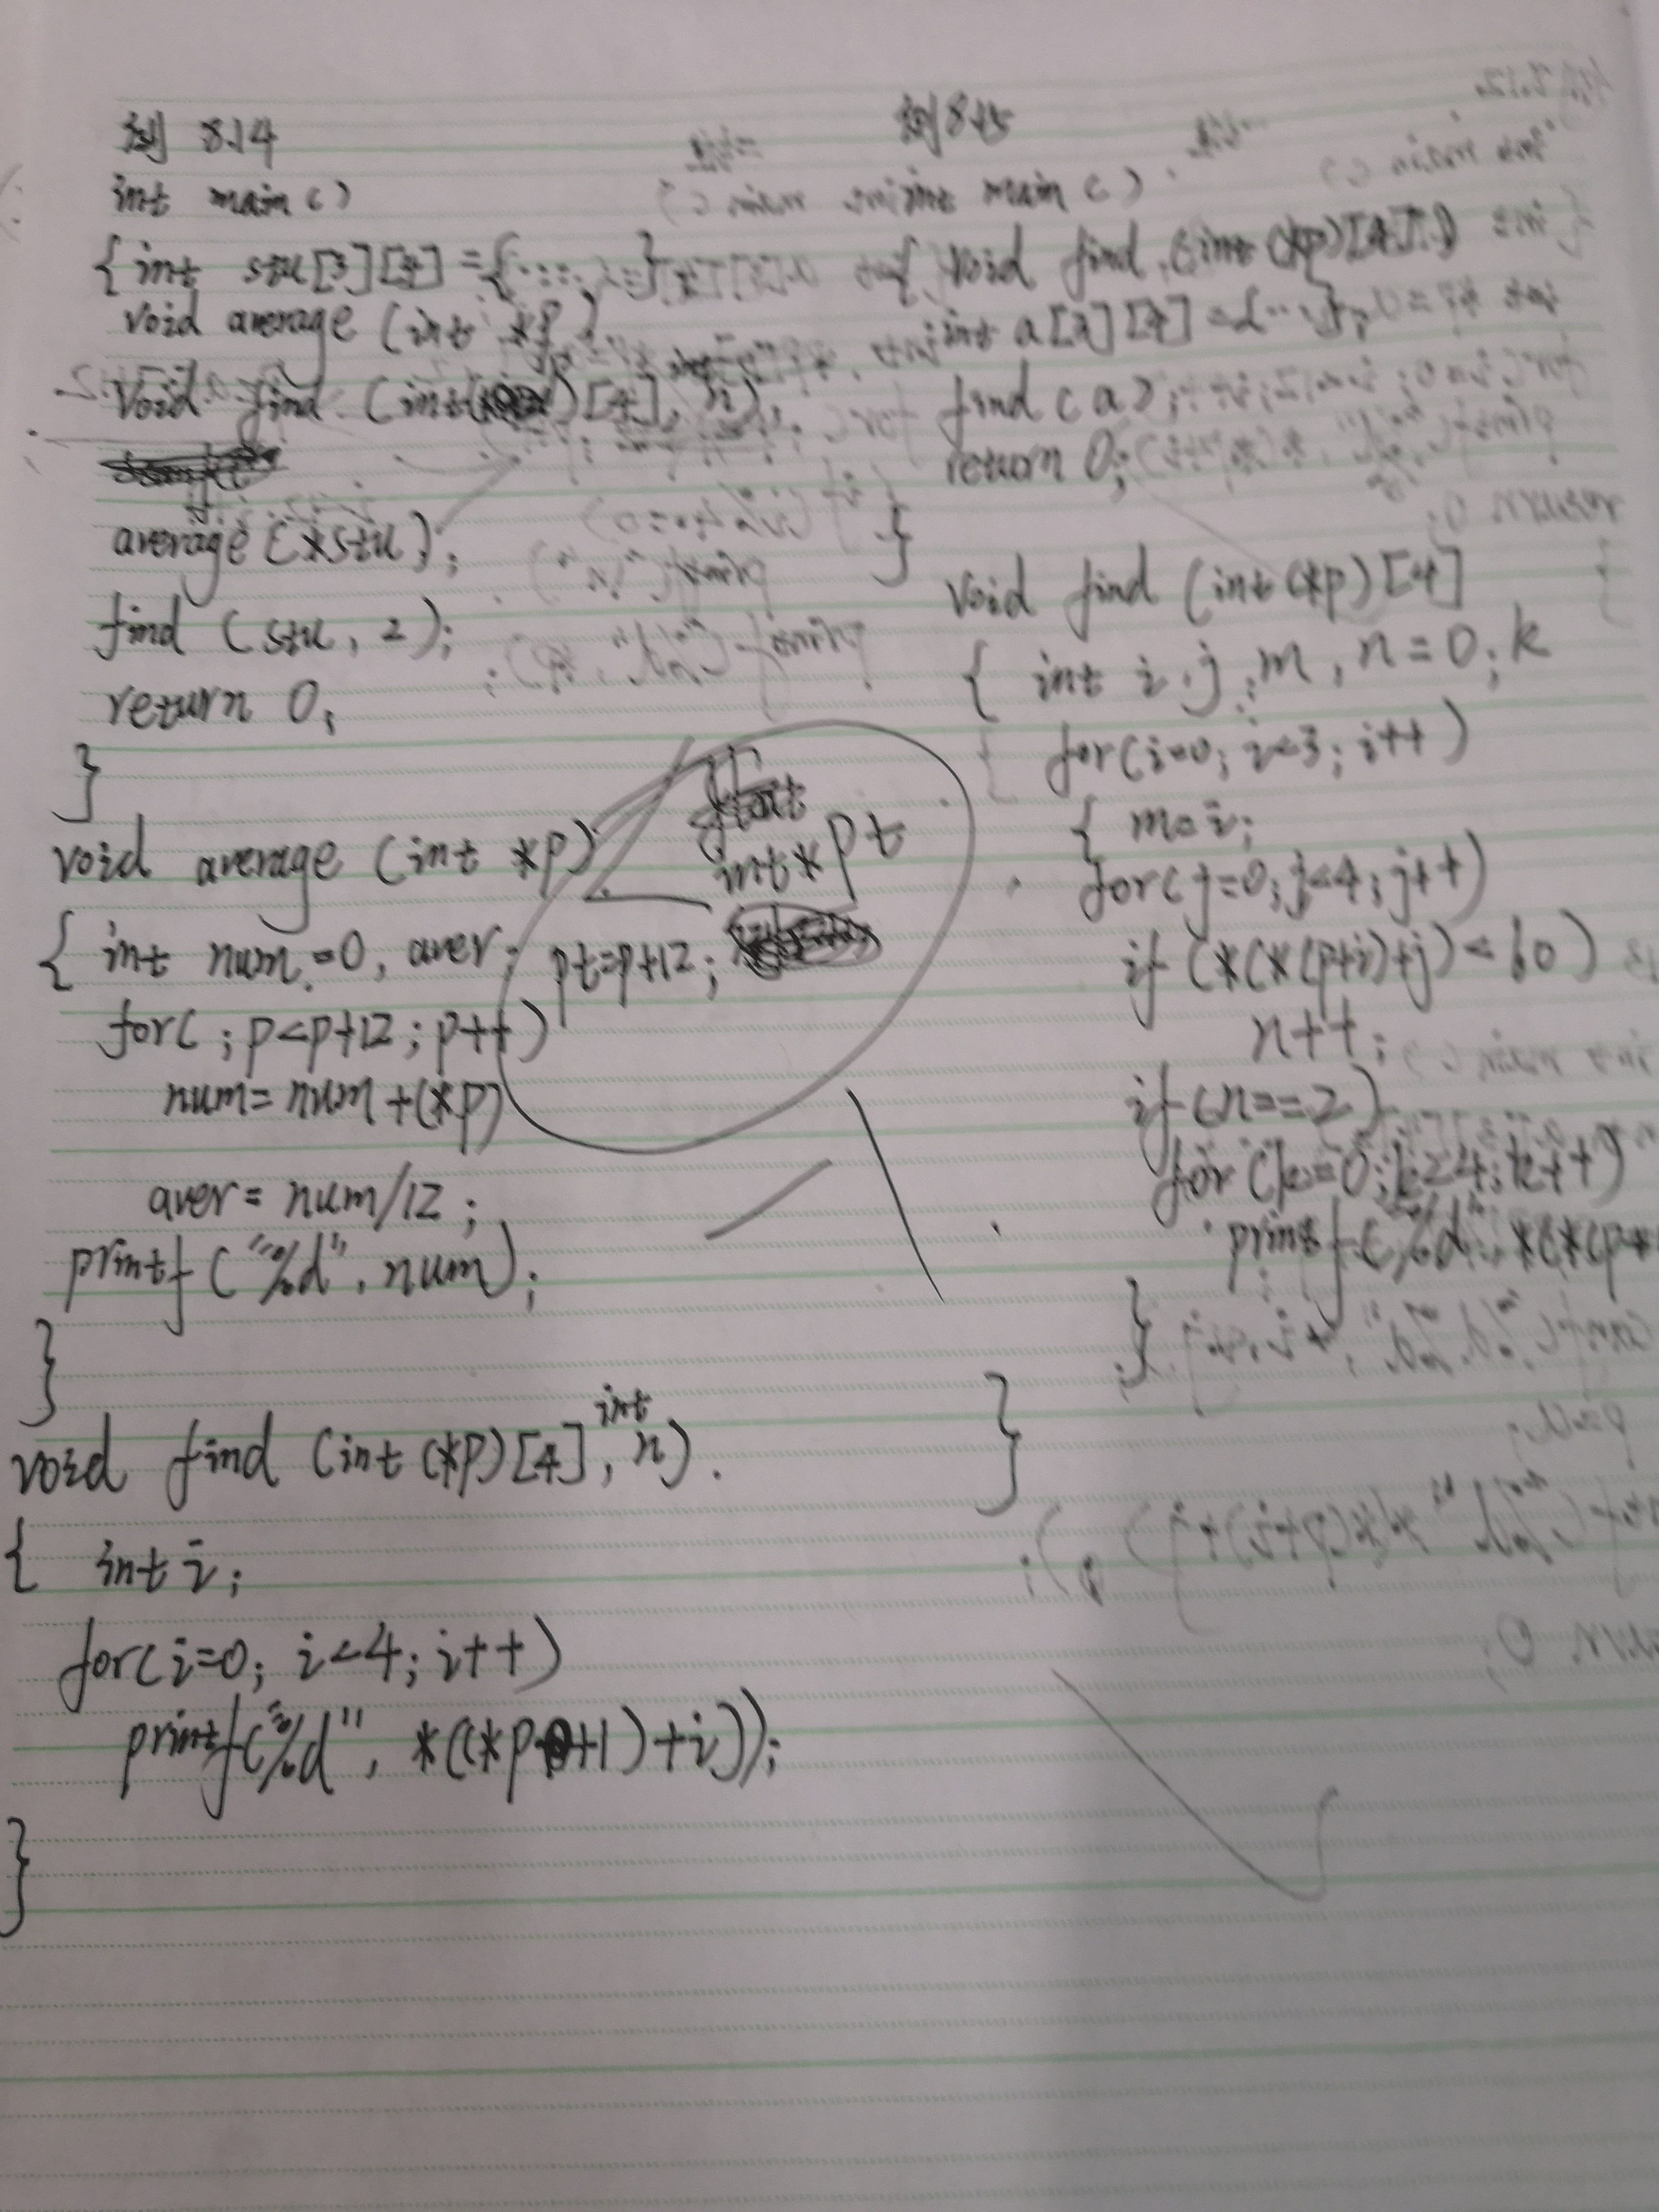 例 8.14
int main()
{int stu[3][4]={……};
void average (int *p);
void find (int( )[4], n);
average(*stu);
find (stu, 2);
return 0;
}
void average (int *p)
int* pt
{ int num=0, aver; pt=p+12;
for(;p<p+12;p++)
num=num+(*p)
aver=num/12;
printf("%d",num);
}
void find (int (*p)[4], int n).
{ int i;
for(i=0; i<4; i++)
printf("%d", *((*p+1)+i));
}
例8.15
int main()
{ void find (int (*p)[4]);
int a[3][4]={…};
find(a);
return 0;
}
void find (int(*p)[4]
{ int i,j,m,n=0;k
for(i=0; i<3; i++)
{ m=i;
for(j=0;j<4;j++)
if (*(*(p+i)+j)<60)
n++;
if(n==2)
for(k=0;k<4;k++)
printf("%d", *(*(p+
}
}